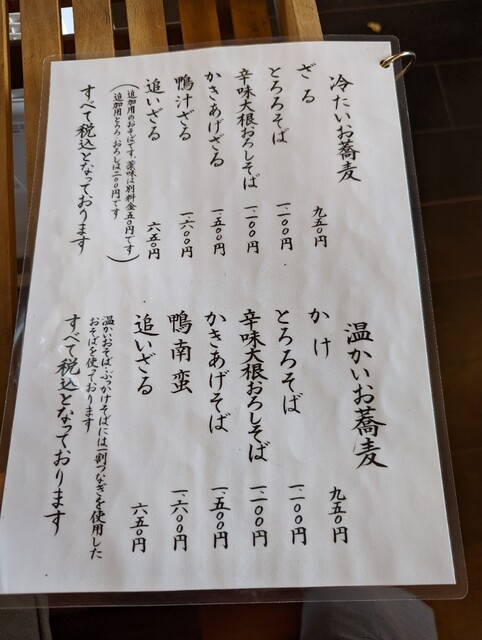 冷たいお蕎麦
ざる 九五〇円
とろろそば 一、一〇〇円
辛味大根おろしそば 一、一〇〇円
かきあげざる 一、五〇〇円
鴨汁ざる 一、六〇〇円
追いざる 六五〇円
(追加用のおそばです。薬味は別料金五〇円です
追加用とろろ・おろしは二〇〇円です)
すべて税込となっております
温かいお蕎麦
かけ 九五〇円
とろろそば 一、一〇〇円
辛味大根おろしそば 一、一〇〇円
かきあげそば 一、五〇〇円
鴨南蛮 一、六〇〇円
追いざる 六五〇円
温かいおそば・ぶっかけそばには一割つなぎを使用した
おそばを使っております
すべて税込となっております